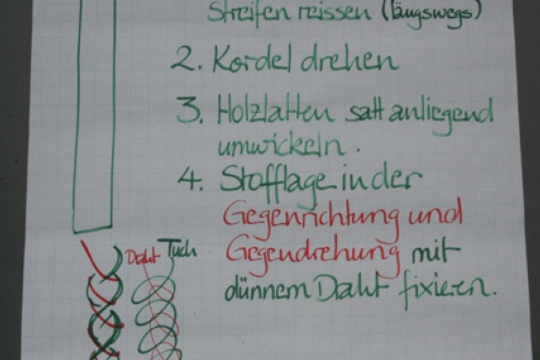 Streifen reissen (längswegs)
2. Kordel drehen
3. Holzlatten satt anliegend
umwickeln.
4. Stofflage in der
Gegenrichtung und
Gegendrehung mit
dünnem Draht fixieren.
Draht Tuch